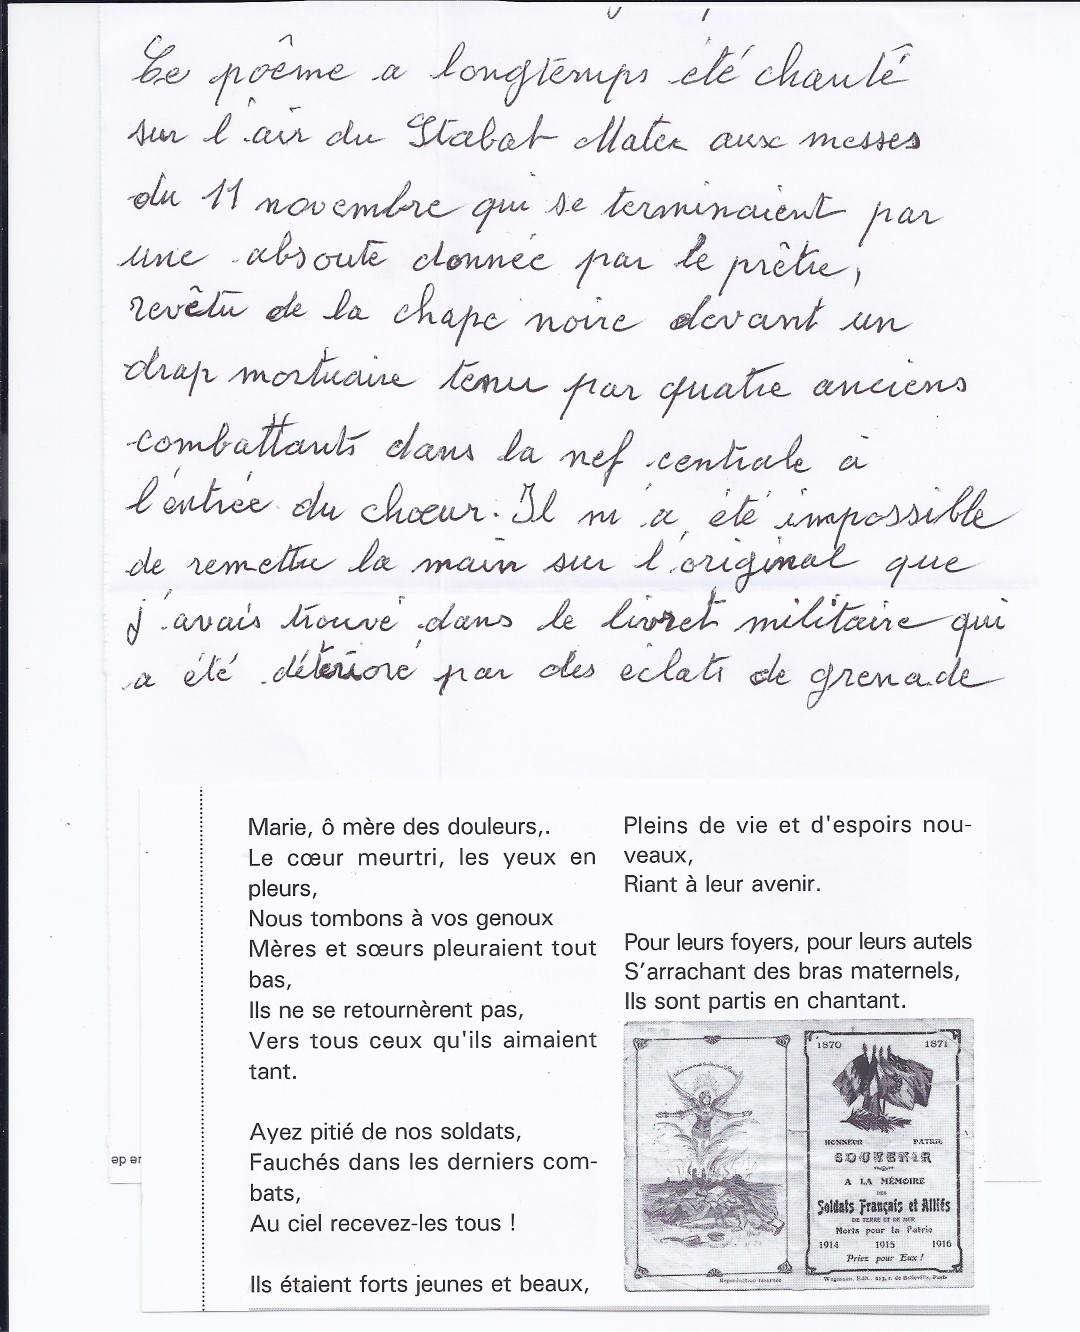 Ce poême a longtemps été chanté
sur l'air du Stabat Mater aux messes
du 11 novembre qui se terminaient par
une absoute donnée par le prêtre,
revêtu de la chape noire devant un
drap mortuaire tenu par quatre anciens
combattants dans la nef centrale à
l'entrée du chœur. Il m'a été impossible
de remettre la main sur l'original que
j'avais trouvé dans le livret militaire qui
a été détérioré par des éclats de grenade
Marie, ô mère des douleurs,.
Le cœur meurtri, les yeux en
pleurs,
Nous tombons à vos genoux
Mères et sœurs pleuraient tout
bas,
Ils ne se retournèrent pas,
Vers tous ceux qu'ils aimaient
tant.
Ayez pitié de nos soldats,
Fauchés dans les derniers com-
bats,
Au ciel recevez-les tous !
Ils étaient forts jeunes et beaux,
Pleins de vie et d'espoirs nou-
veaux,
Riant à leur avenir.
Pour leurs foyers, pour leurs autels
S'arrachant des bras maternels,
Ils sont partis en chantant.
1870 1871
HONNEUR PATRIE
SOUVENIR
A LA MÉMOIRE
DES
Soldats Français et Alliés
DE TERRE ET DE MER
Morts pour la Patrie
1914 1915 1916
Priez pour Eux !
Reproduction réservée